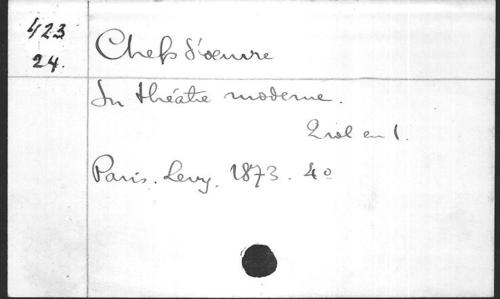 423
24.
Chefs d'œuvre
du théâtre moderne.
2 vol en 1.
Paris. Levy. 1873. 4o